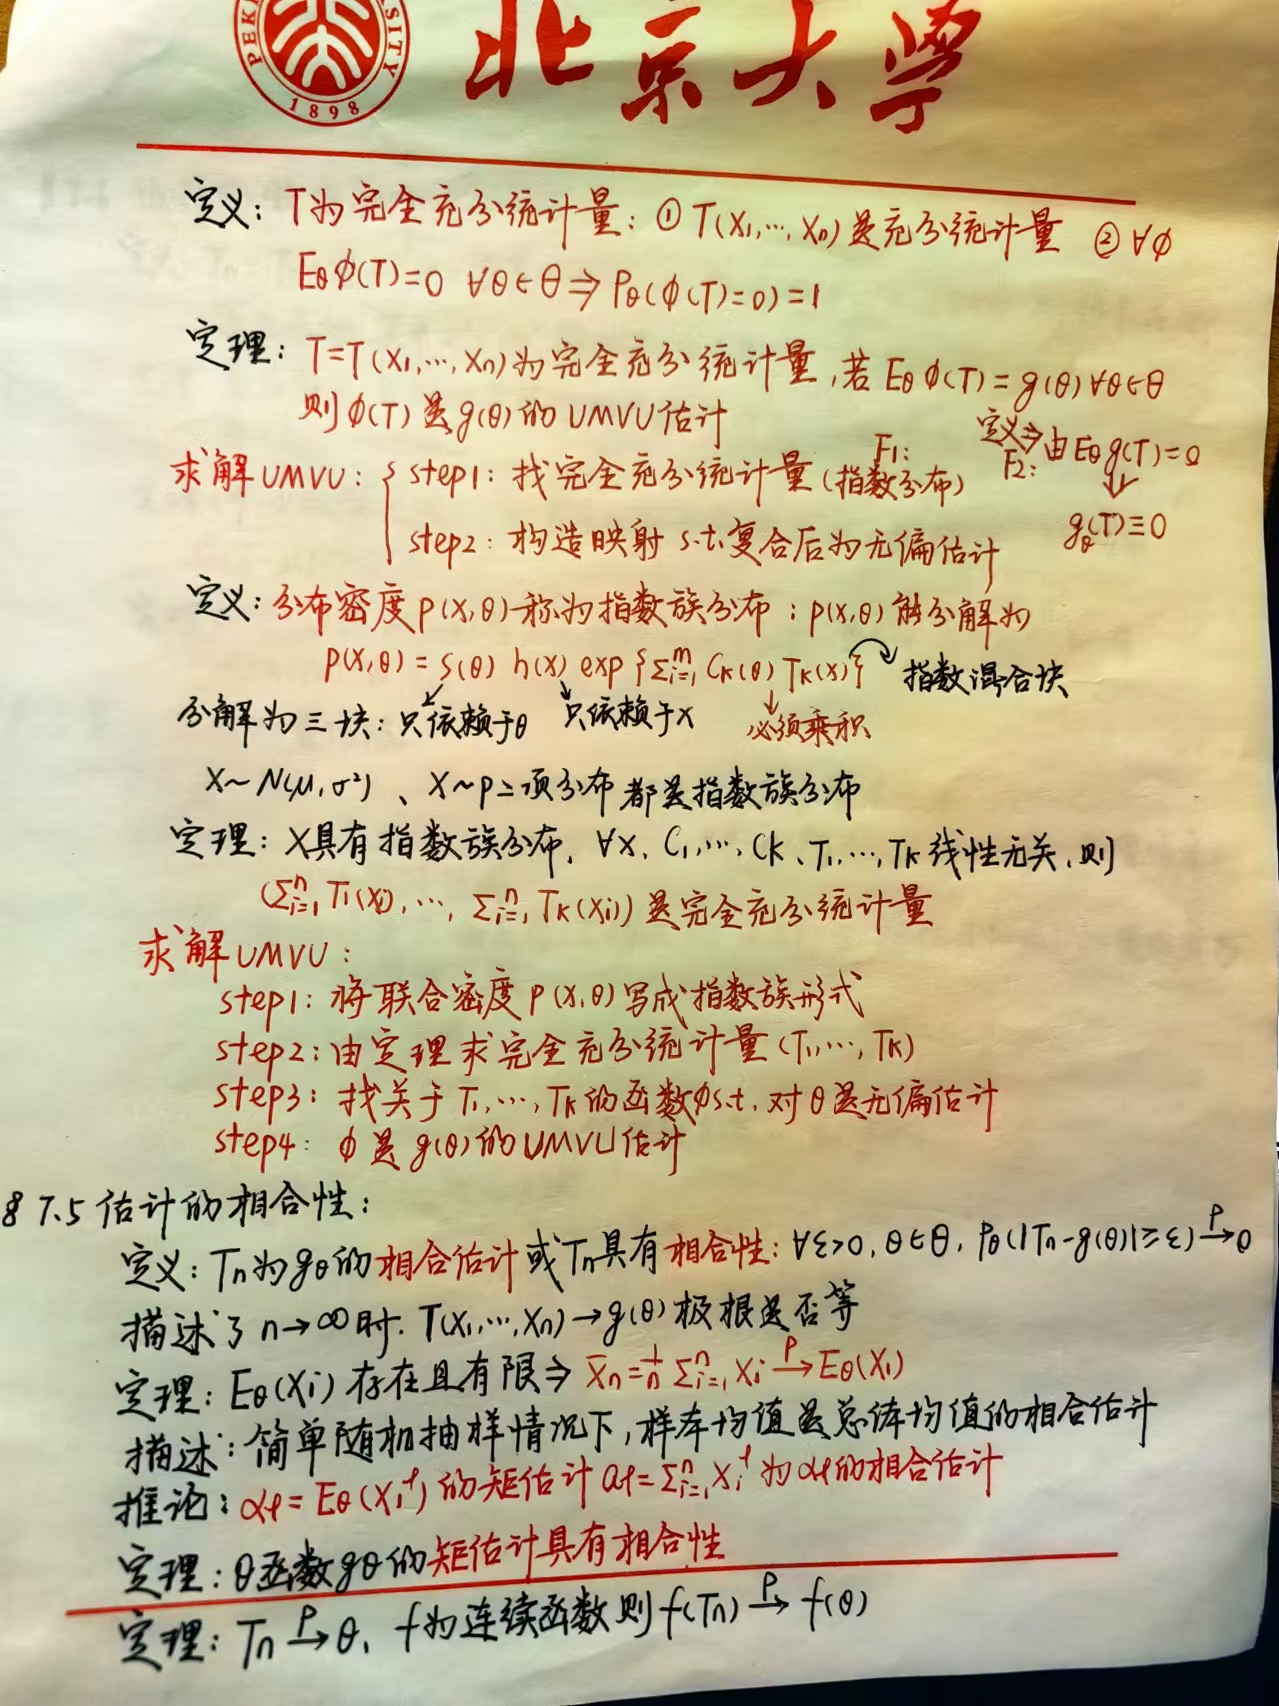 PEK SITY
1898
北京大学
定义: T为完全充分统计量: ① T(X1,…,Xn)是充分统计量 ② ∀ϕ
Eθ ϕ(T)=0 ∀θ∈Θ ⇒ Pθ(ϕ(T)=0)=1
定理: T=T(X1,…,Xn)为完全充分统计量,若 Eθ ϕ(T)=g(θ) ∀θ∈Θ
则 ϕ(T) 是 g(θ) 的 UMVU 估计
求解UMVU: { step1: 找完全充分统计量 (F1: 指数分布) F2: 定义⇒由 Eθ g(T)=0
⇓
gθ(T)≡0
step2: 构造映射 s.t.复合后为无偏估计
定义: 分布密度 p(x,θ) 称为指数族分布: p(x,θ) 能分解为
p(x,θ) = S(θ) h(x) exp{∑ᵐᵢ₌₁ Ck(θ) Tk(x)} 指数混合块
分解为三块: 只依赖于θ 只依赖于x 必须乘积
X~N(μ,σ²)、X~p二项分布都是指数族分布
定理: X具有指数族分布, ∀x, C1,…,Ck、T1,…,Tk 线性无关,则
(∑ⁿᵢ₌₁ T1(Xi),…, ∑ⁿᵢ₌₁ Tk(Xi)) 是完全充分统计量
求解UMVU:
step1: 将联合密度 p(x,θ) 写成指数族形式
step2: 由定理求完全充分统计量 (T1,…,Tk)
step3: 找关于 T1,…,Tk 的函数ϕ s.t. 对θ是无偏估计
step4: ϕ 是 g(θ) 的 UMVU 估计
§ 7.5 估计的相合性:
定义: Tn为gθ的相合估计或Tn具有相合性: ∀ε>0, θ∈Θ, Pθ(|Tn-g(θ)|≥ε) →ᴾ 0
描述了 n→∞时. T(X1,…,Xn)→g(θ) 极根是否等
定理: Eθ(Xi) 存在且有限⇒ X̄n=1/n ∑ⁿᵢ₌₁ Xi →ᴾ Eθ(X1)
描述: 简单随机抽样情况下, 样本均值是总体均值的相合估计
推论: αr=Eθ(X1ʳ) 的矩估计 ar=∑ⁿᵢ₌₁ Xiʳ 为 αr 的相合估计
定理: θ函数gθ的矩估计具有相合性
定理: Tn →ᴾ θ, f为连续函数则 f(Tn) →ᴾ f(θ)